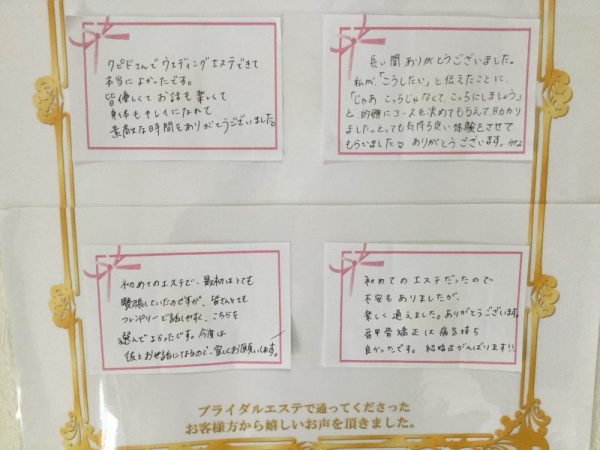 クピドさんでウエディングエステできて
本当によかったです。
皆優しくてお話も楽しくて
身体もキレイになれて
素敵な時間をありがとうございました。
長い間ありがとうございました。
私が、「こうしたい」と伝えたことに、
「じゃあこっちじゃなくて、こっちにしましょう」
と、的確にコースを決めてもらえて助かり
ました。とっても気持ち良い体験をさせて
もらいました♡ ありがとうございます。
初めてのエステで、最初はとても
緊張していたのですが、皆さんとても
フレンドリーで話しやすく、こちらを
選んでよかったです。今度は
母とお世話になるので、宜しくお願いします。
初めてのエステだったので
不安もありましたが、
楽しく通えました。ありがとうございます。
肩甲骨矯正は痛気持ち
良かったです。結婚式がんばります!!
ブライダルエステで通ってくださった
お客様方から嬉しいお声を頂きました。